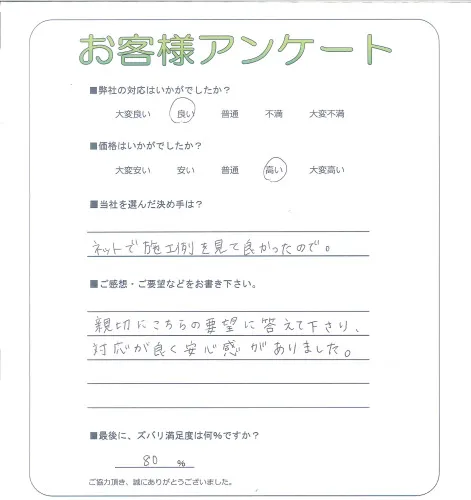 お客様アンケート
■弊社の対応はいかがでしたか？
大変良い 良い 普通 不満 大変不満
■価格はいかがでしたか？
大変安い 安い 普通 高い 大変高い
■当社を選んだ決め手は？
ネットで施工例を見て良かったので。
■ご感想・ご要望などをお書き下さい。
親切にこちらの要望に答えて下さり、
対応が良く安心感がありました。
■最後に、ズバリ満足度は何%ですか？
80 %
ご協力頂き、誠にありがとうございました。